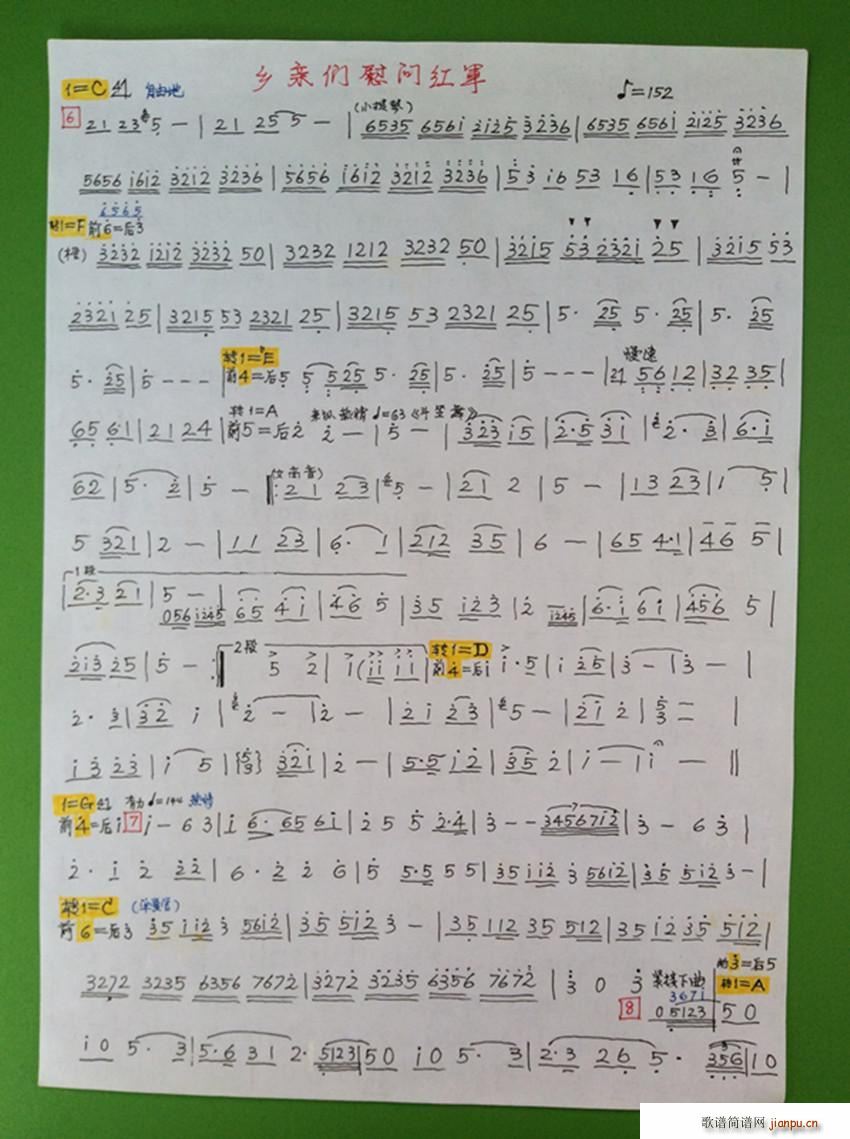 乡亲们慰问红軍
1=C 自由地 ♪=152
(小提琴)
6 21 235 — | 21 25 5 — | 6535 6561 2125 3236 | 6535 6561 2125 3236
5656 1612 3212 3236 | 5656 1612 3212 3236 | 53 16 53 16 | 53 16 5 — |
6565
转1=F 前6=后3
3232 1212 3232 50 | 3232 1212 3232 50 | 3215 53 2321 25 | 3215 53
2321 25 | 3215 53 2321 25 | 3215 53 2321 25 | 5· 25 5· 25 | 5· 25
转1=E 慢速
5· 25 | 5 - - - | 前4=后5 5 525 5· 25 | 5· 25 | 5 - - - | 56 12 | 32 35 |
转1=A ♩=63
65 61 | 21 24 | 前5=后2 2 — | 5 — | 323 15 | 2·5 31 | 2· 3 | 6·1
(女高音)
62 | 5· 2 | 5 — ‖: 21 23 | 5 — | 21 2 | 5 — | 13 23 | 1 5 |
5 321 | 2 — | 11 23 | 6· 1 | 212 35 | 6 — | 65 4·1 | 46 5 |
1段
2·3 21 | 5 — | 056 1245 65 41 | 46 5 | 35 123 | 2 1245 | 6·1 61 | 456 5 |
2段 转1=D
213 25 | 5 — :‖ 5 2 | 1 (11 11 | 前4=后1 1·5 | 1 25 | 3 — | 3 — |
2· 3 | 32 1 | 2 — | 2 — | 21 23 | 5 — | 21 2 | 53 = |
13 23 | 1 5 | {53} 321 | 2 — | 5·5 12 | 35 2 | 1 — | 1 — ‖
1=G 有力 ♩=144 热情
前4=后1 7 1 — 63 | 1 6· 65 61 | 2 5 5 2·4 | 3 - - 3456712 | 3 — 63 |
2· 1 2 22 | 6· 2 2 6 | 5 5·5 5 5 | 35 112 3 5612 | 35 512 3 — |
转1=C
前6=后3 35 112 3 5612 | 35 512 3 — | 35 112 35 512 | 35 12 35 512 |
前3=后5
3272 3235 6356 7672 | 3272 3235 6356 7672 | 3 0 3 紧接下曲 转1=A
3671
8 05123 50
10 5· 3 | 5·6 31 2· 5123 | 50 10 5· 3 | 2·3 26 5· 356 | 10
歌谱简谱网 jianpu.cn